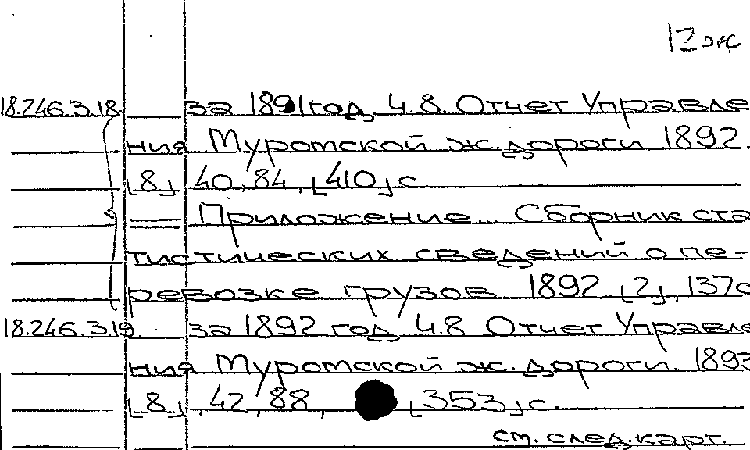 12 эк
18.246.3.18 за 1891 год, ч.8. Отчет Управле
ния Муромской ж. дороги 1892.
[8], 40, 84, [410] с.
— Приложение... Сборник ста
тистических сведений о пе-
ревозке грузов 1892 [2], 137с
18.246.3.19 за 1892 год, ч.8 Отчет Управле
ния Муромской ж. дороги. 1893
[8], 42, 88, [353] с.
см. след. карт.